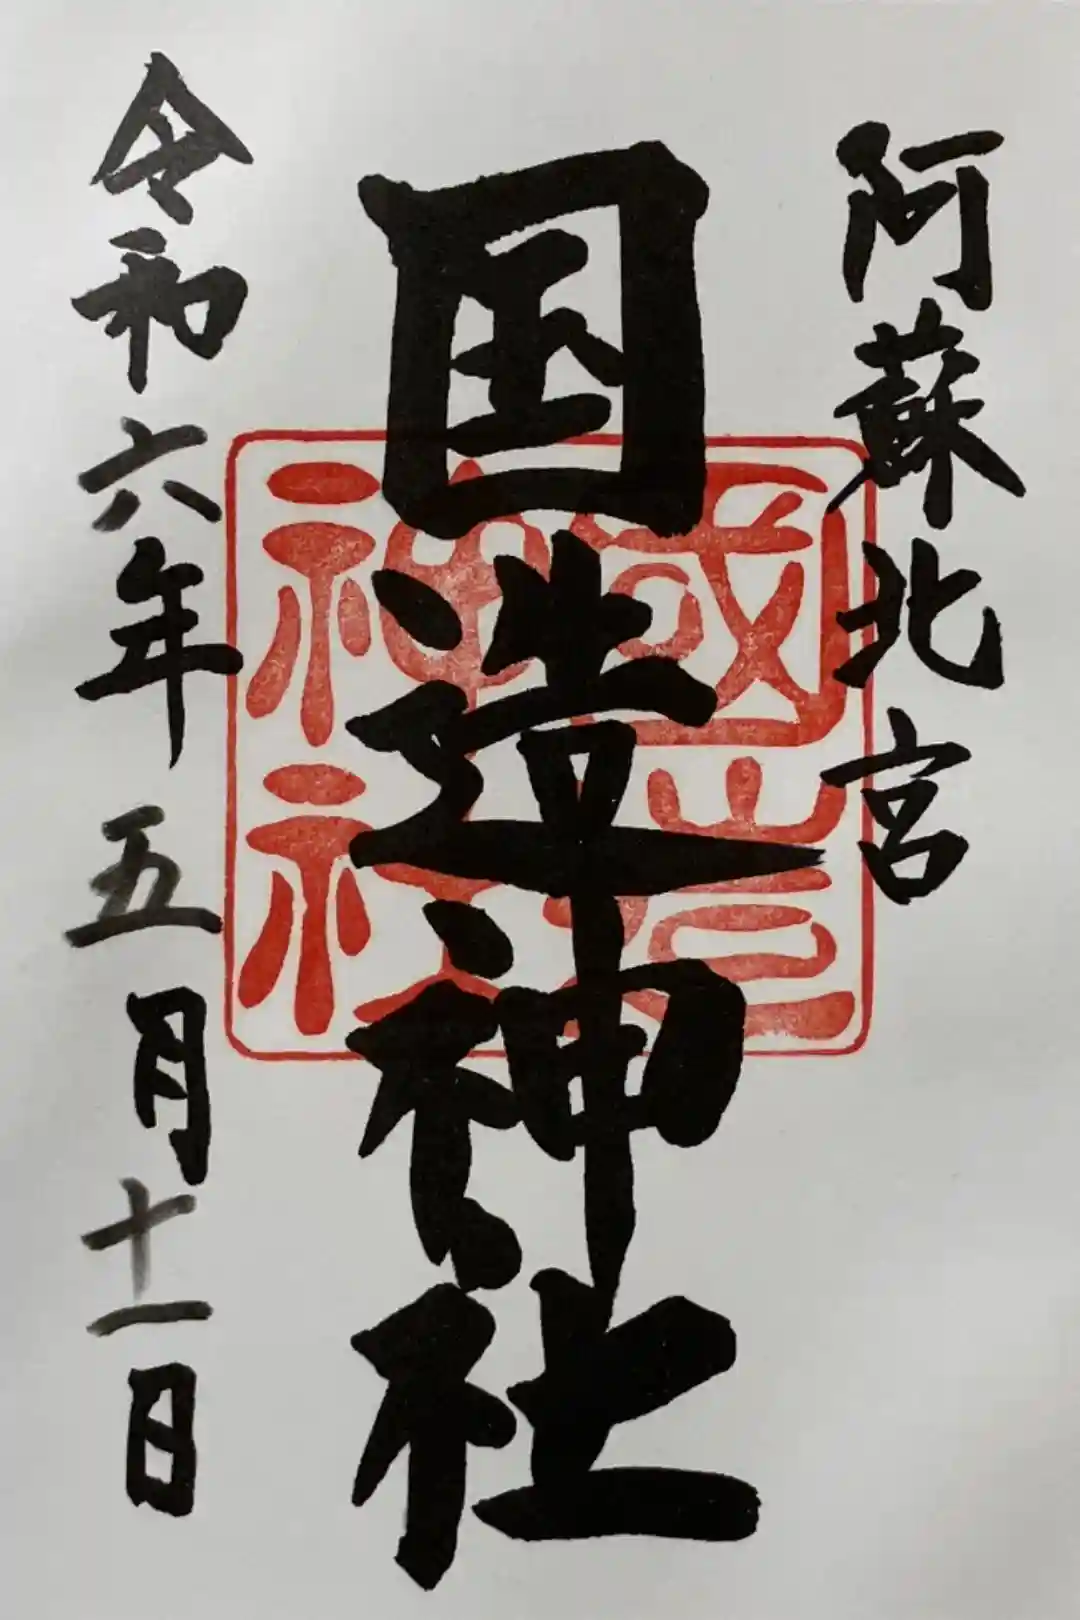 阿蘇北宮
国造神社
國造
神社
令和六年五月十一日